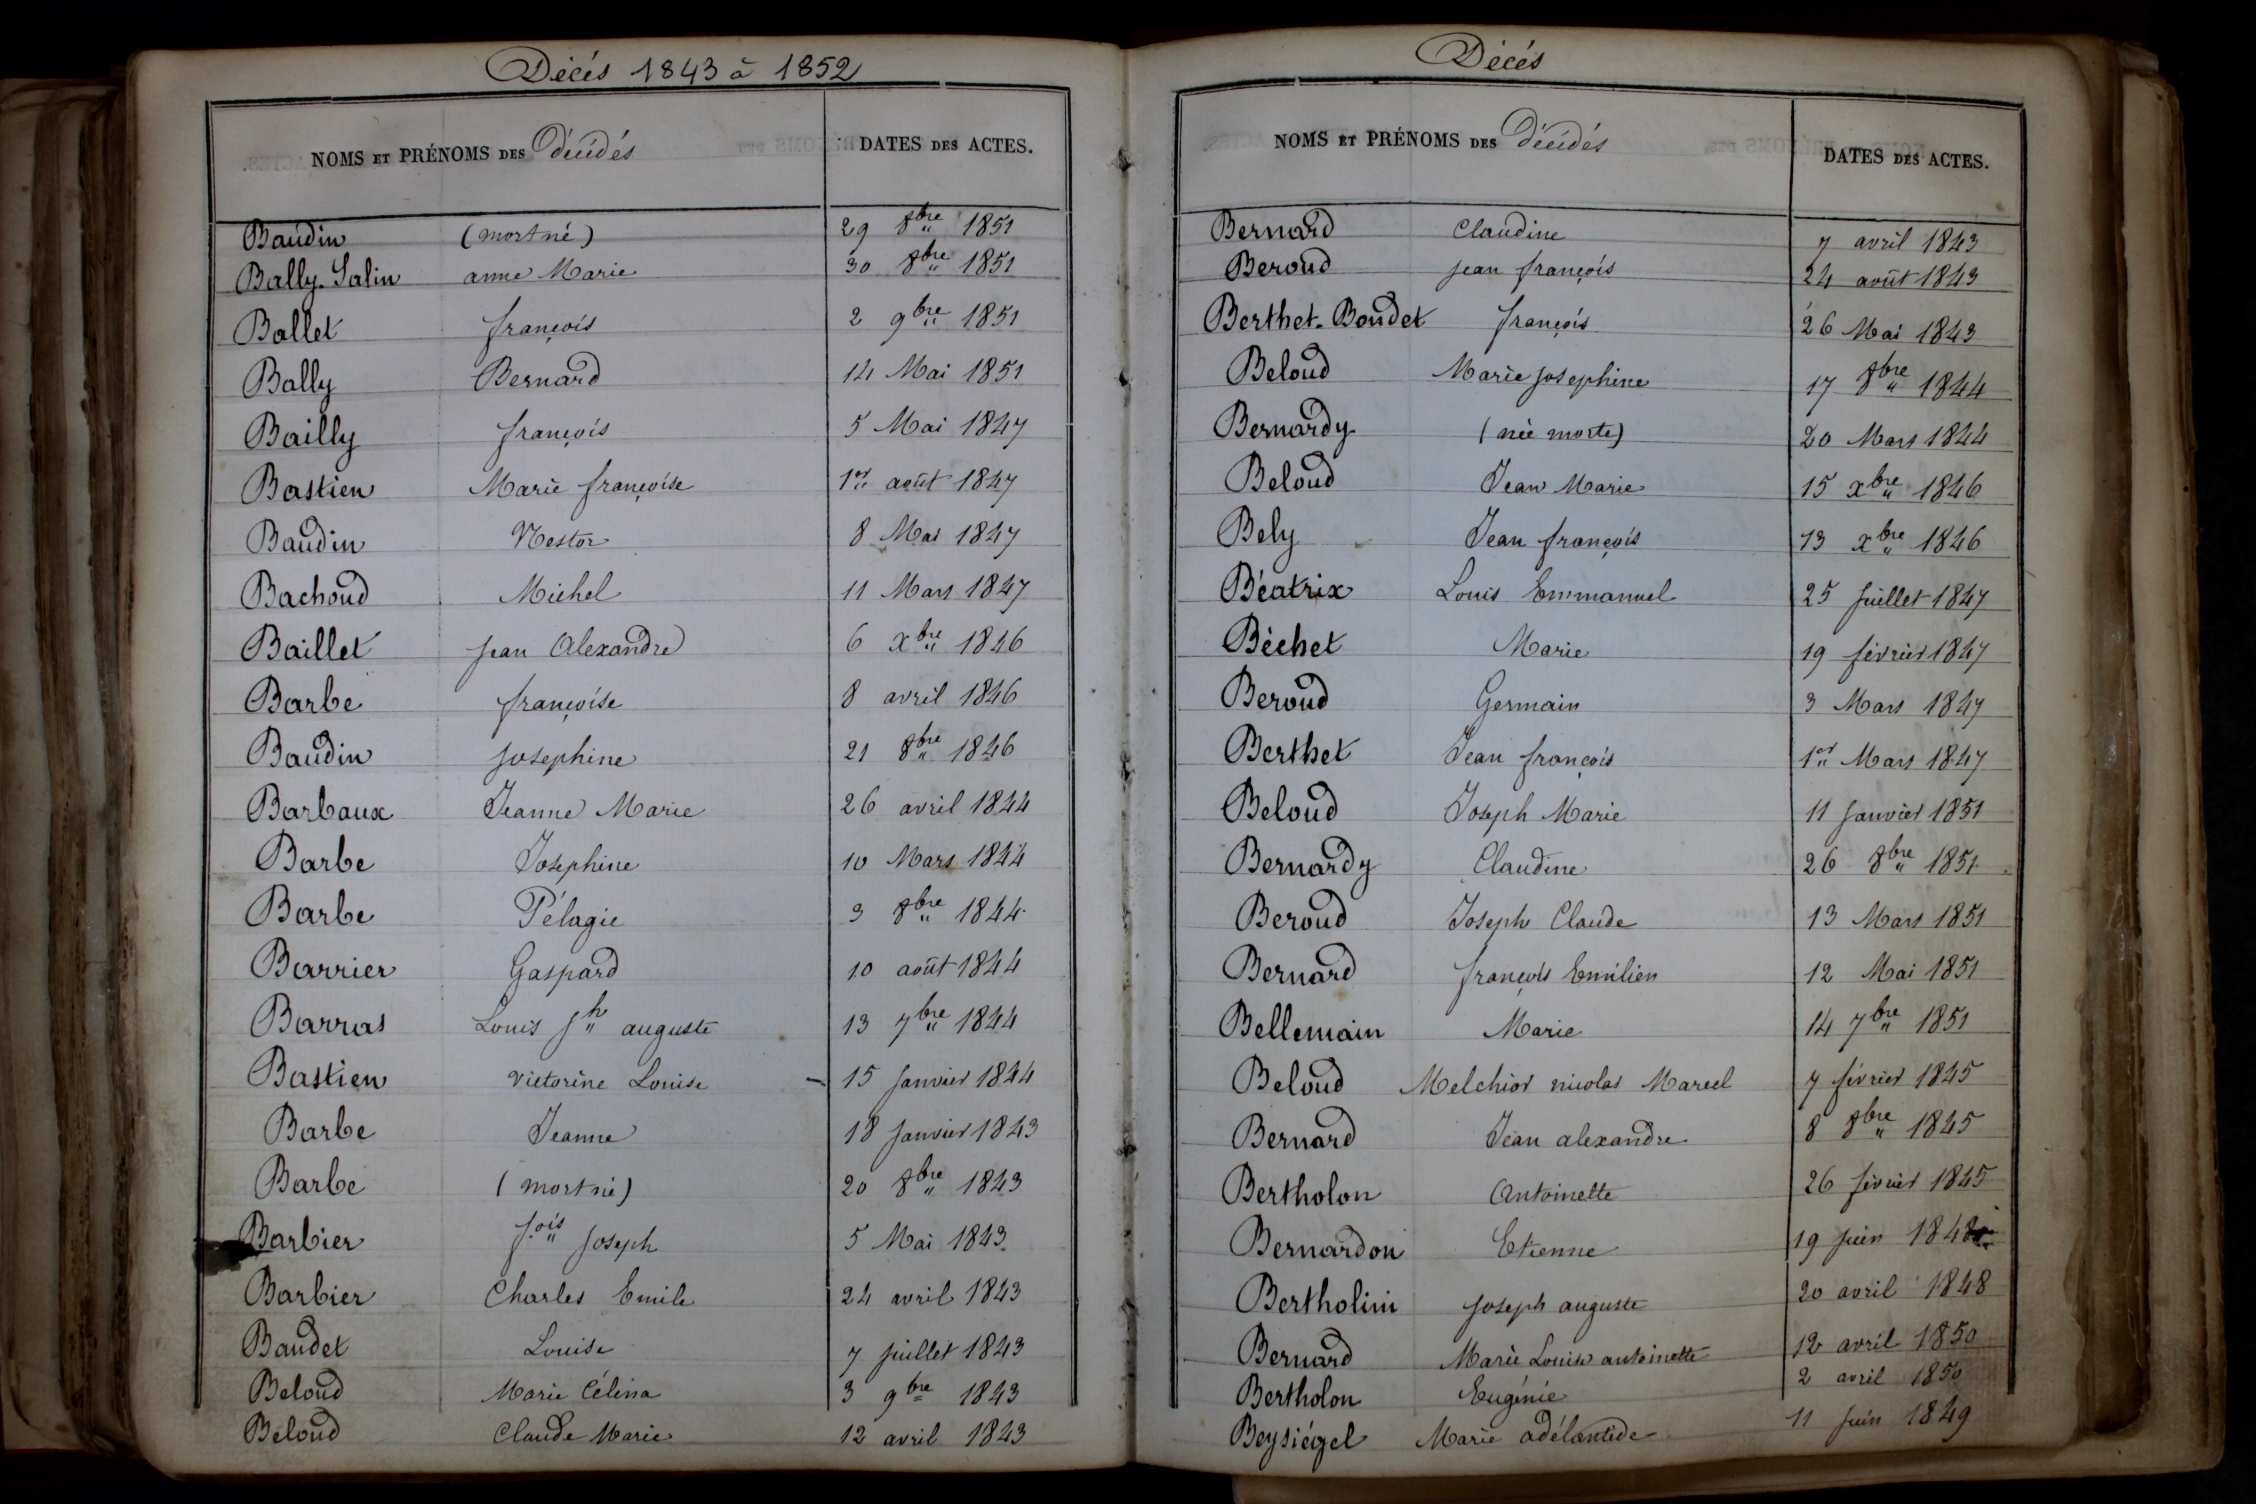 Décés 1843 à 1852
NOMS ET PRÉNOMS DES décédés DATES DES ACTES.
Baudin (mort né) 29 8bre 1851
Bally-Salin anne Marie 30 8bre 1851
Ballet françois 2 9bre 1851
Bally Bernard 14 Mai 1851
Bailly françois 5 Mai 1847
Bastien Marie françoise 1er août 1847
Baudin Nestor 8 Mai 1847
Bachoud Michel 11 Mars 1847
Baillet jean Alexandre 6 xbre 1846
Barbe françoise 8 avril 1846
Baudin josephine 21 8bre 1846
Barbaux Jeanne Marie 26 avril 1844
Barbe Josephine 10 Mars 1844
Barbe Pélagie 3 8bre 1844
Barrier Gaspard 10 août 1844
Barras Louis jh auguste 13 7bre 1844
Bastien victorine Louise 15 janvier 1844
Barbe Jeanne 18 janvier 1843
Barbe (mort né) 20 8bre 1843
Barbier fois joseph 5 Mai 1843
Barbier Charles Emile 24 avril 1843
Baudet Louise 7 juillet 1843
Beloud Marie Célina 3 9bre 1843
Beloud Claude Marie 12 avril 1843
Décés
NOMS ET PRÉNOMS DES décédés DATES DES ACTES.
Bernard Claudine 7 avril 1843
Beroud jean françois 24 août 1843
Berthet-Boudet françois 26 Mai 1843
Beloud Marie josephine 17 8bre 1844
Bernardy (née morte) 20 Mars 1844
Beloud Jean Marie 15 xbre 1846
Bely Jean françois 13 xbre 1846
Béatrix Louis Emmanuel 25 juillet 1847
Béchet Marie 19 février 1847
Beroud Germain 3 Mars 1847
Berthet Jean françois 1er Mars 1847
Beloud Joseph Marie 11 janvier 1851
Bernardy Claudine 26 8bre 1851
Beroud Joseph Claude 13 Mars 1851
Bernard françois Emilien 12 Mai 1851
Bellemain Marie 14 7bre 1851
Beloud Melchior nicolas Marcel 7 février 1845
Bernard Jean alexandre 8 8bre 1845
Bertholon Antoinette 26 février 1845
Bernardon Etienne 19 juin 1848
Bertholini joseph auguste 20 avril 1848
Bernard Marie Louise antoinette 12 avril 1850
Bertholon Eugénie 2 avril 1850
Beysiégel Marie adélantide 11 juin 1849